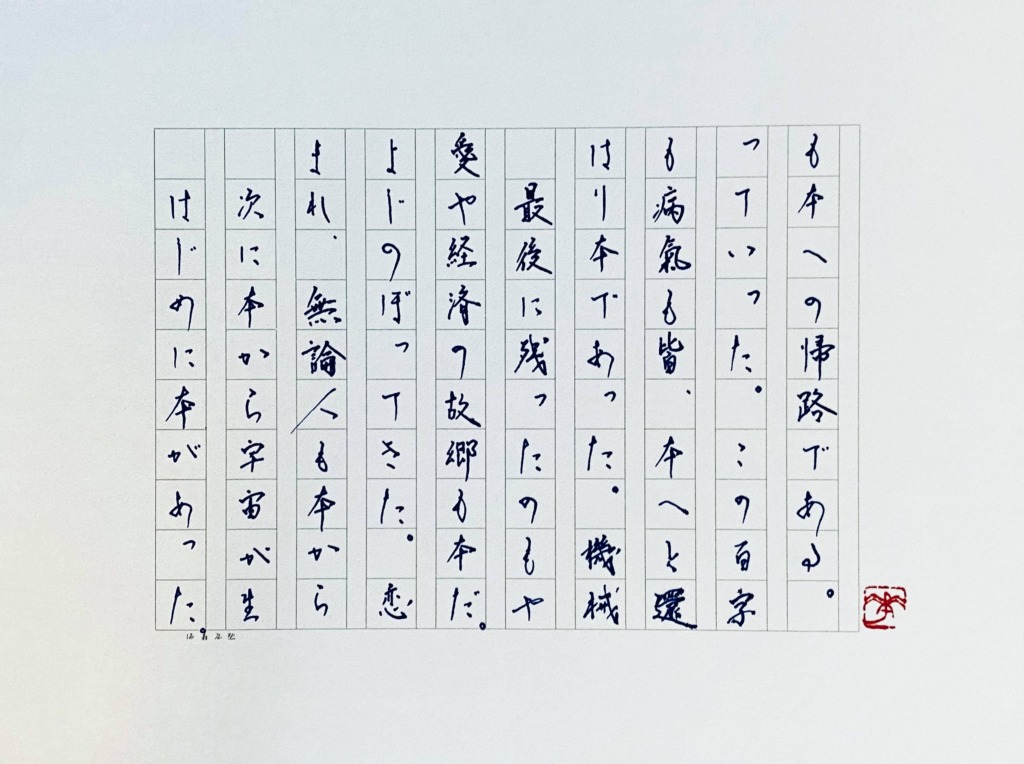 はじめに本があった。
次に本から宇宙が生
まれ、無論人も本から
よじのぼってきた。恋
愛や経済の故郷も本だ。
最後に残ったのもや
はり本であった。機械
も病氣も皆、本へと還
っていった。この百字
も本への帰路である。